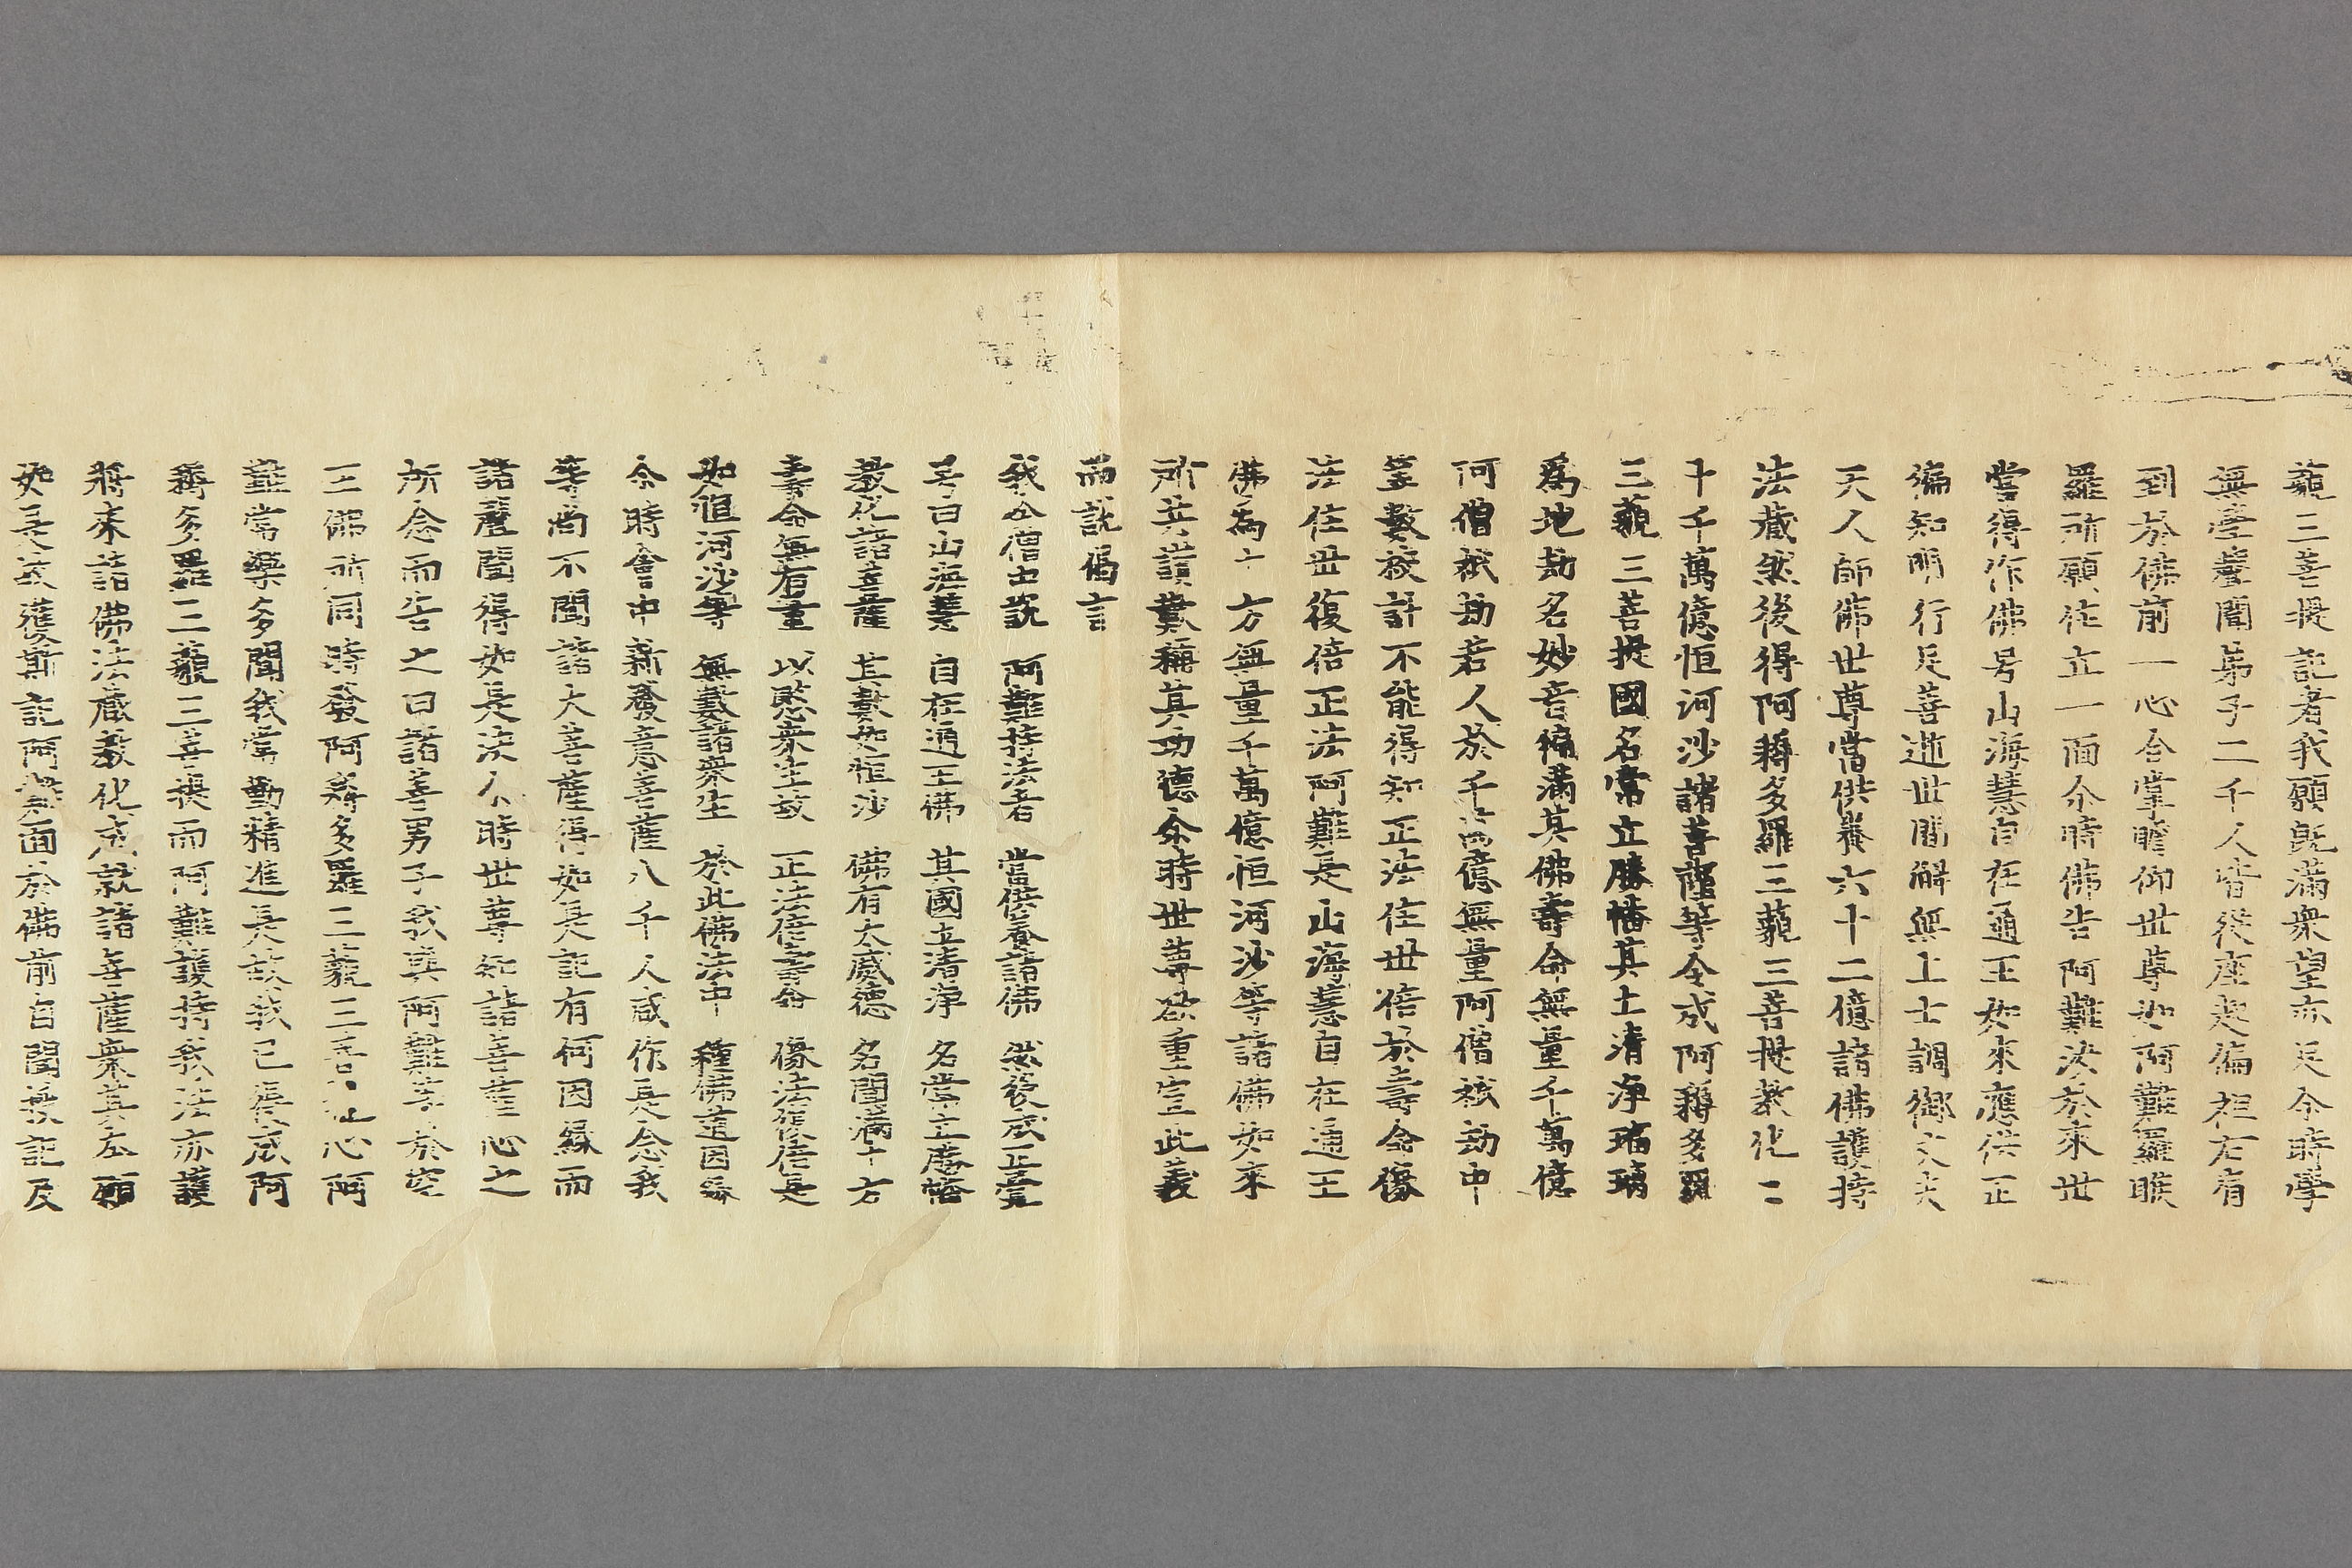 藐三菩提記者我願既滿衆望亦足尒時學
無學聲聞弟子二千人皆從座起偏袒右肩
到於佛前一心合掌瞻仰世尊如阿難羅睺
羅所願住立一面尒時佛告阿難汝於來世
當得作佛号山海慧自在通王如來應供正
徧知明行足善逝世間解無上士調御丈夫
天人師佛世尊當供養六十二億諸佛護持
法藏然後得阿耨多羅三藐三菩提教化二
十千萬億恒河沙諸菩薩等令成阿耨多羅
三藐三菩提國名常立勝幡其土清淨瑠璃
爲地劫名妙音徧滿其佛壽命無量千萬億
阿僧祇劫若人於千萬億無量阿僧祇劫中
筭數校計不能得知正法住世倍於壽命像
法住世復倍正法阿難是山海慧自在通王
佛爲十方無量千萬億恒河沙等諸佛如來
所共讃歎稱其功德尒時世尊欲重宣此義
而說偈言
我今僧中說　阿難持法者　當供養諸佛　然後成正覺
号曰山海慧　自在通王佛　其國土清淨　名常立勝幡
教化諸菩薩　其數如恒沙　佛有大威德　名聞滿十方
壽命無有量　以愍衆生故　正法倍壽命　像法復倍是
如恒河沙等　無數諸衆生　於此佛法中　種佛道因緣
尒時會中新發意菩薩八千人咸作是念我
等尚不聞諸大菩薩得如是記有何因緣而
諸聲聞得如是決尒時世尊知諸菩薩心之
所念而告之曰諸善男子我與阿難等於空
王佛所同時發阿耨多羅三藐三菩提心阿
難常樂多聞我常勤精進是故我已得成阿
耨多羅三藐三菩提而阿難護持我法亦護
將來諸佛法藏教化成就諸菩薩衆其本願
如是故獲斯記阿難面於佛前自聞授記及